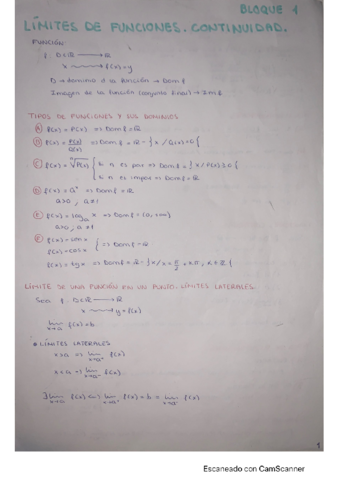 BLOQUE 1
LÍMITES DE FUNCIONES. CONTINUIDAD.
FUNCIÓN
f: D⊂ℝ → ℝ
x → f(x)=y
D → dominio de la función → Dom f
Imagen de la función (conjunto final) → Im f
TIPOS DE FUNCIONES Y SUS DOMINIOS
A) f(x) = P(x) => Dom f = ℝ
B) f(x) = P(x)/Q(x) => Dom f = ℝ - {x / Q(x)=0}
C) f(x) = ⁿ√P(x) { si n es par => Dom f = {x / P(x)≥0}
si n es impar => Dom f = ℝ
D) f(x) = aˣ => Dom f = ℝ
a>0, a≠1
E) f(x) = logₐ x => Dom f = (0, +∞)
a>0, a≠1
F) f(x) = sen x
f(x) = cos x } => Dom f = ℝ
f(x) = tg x => Dom f = ℝ - {x / x = π/2 + kπ, k∈ℤ}
LÍMITE DE UNA FUNCIÓN EN UN PUNTO. LÍMITES LATERALES.
Sea f: D⊂ℝ → ℝ
x → y = f(x)
lim x→a f(x) = b
• LÍMITES LATERALES
x>a => lim x→a⁺ f(x)
x<a => lim x→a⁻ f(x)
∃ lim x→a f(x) <=> lim x→a⁺ f(x) = b = lim x→a⁻ f(x)
1
Escaneado con CamScanner